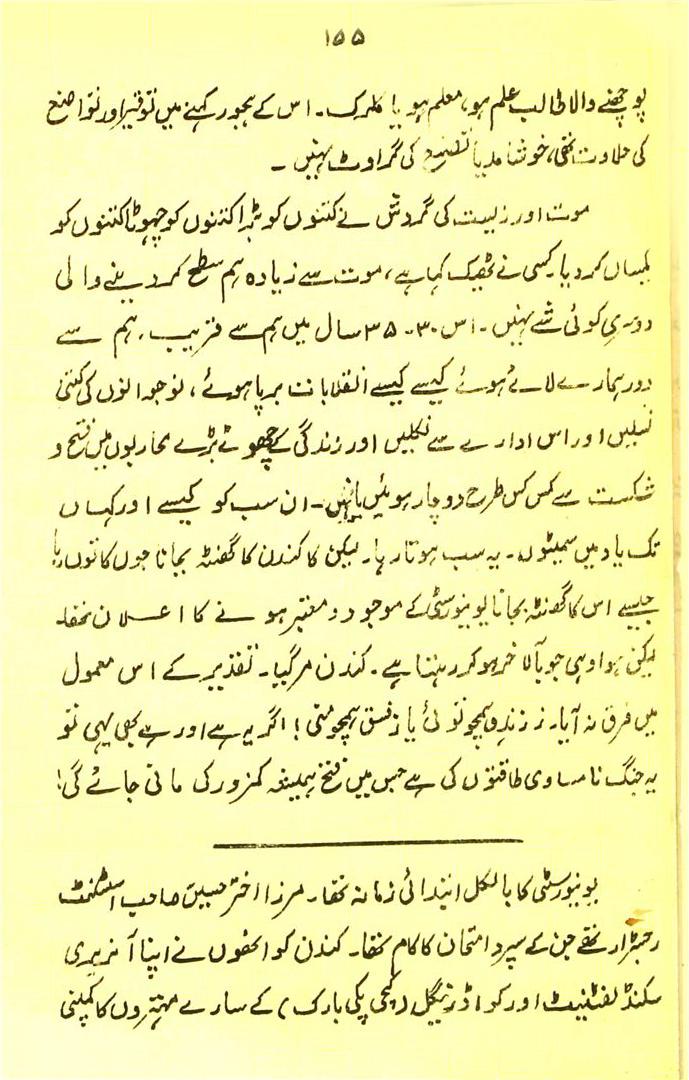 ۱۵۵
پوچھنے والا طالب علم ہو، معلم ہو یا کلرک۔ اس کے ہجور کہنے میں توقیر اور تواضع
کی حلاوت تھی، خوشامد یا تصنع کی گراوٹ نہیں۔
موت اور زیست کی گردش نے کتنوں کو بڑا کتنوں کو چھوٹا کتنوں کو
یکساں کر دیا۔ کسی نے ٹھیک کہا ہے، موت سے زیادہ ہم سطح کر دینے والی
دوسری کوئی شے نہیں۔ اس ۳۰۔ ۳۵ سال میں ہم سے قریب، ہم سے
دور ہمارے لائے ہوئے کیسے کیسے انقلابات برپا ہوئے، نوجوانوں کی کتنی
نسلیں اور اس ادارے سے نکلیں اور زندگی کے چھوٹے بڑے محاربوں میں فتح و
شکست سے کس کس طرح دوچار ہوئیں یا نہیں۔ ان سب کو کیسے اور کہاں
تک یاد میں سمیٹوں۔ یہ سب ہوتا رہا۔ لیکن کا کندن کا گھنٹہ بجانا جوں کا توں رہا
جیسے اس کا گھنٹہ بجانا یونیورسٹی کے موجود و معتبر ہونے کا اعلان تھا۔
لیکن ہوا وہی جو بالآخر ہو کر رہتا ہے۔ کندن مر گیا۔ تقدیر کے اس معمول
میں فرق نہ آیا۔ ز زندہ ہمچو توئی یا ز فسق ہمچو منی! اگر یہ ہے اور ہے بھی یہی تو
یہ جنگ نامساوی طاقتوں کی ہے جس میں فتح ہمیشہ کمزور کی مانی جائے گی!
یونیورسٹی کا بالکل ابتدائی زمانہ تھا۔ مرزا اختر حسین صاحب اسسٹنٹ
رجسٹرار تھے جن کے سپرد امتحان کا کام تھا۔ کندن کو انھوں نے اپنا آنریری
سکنڈ لفٹنینٹ اور کواڈرینگل (کچی پکی بارک) کے سارے مہتروں کا کمپنی